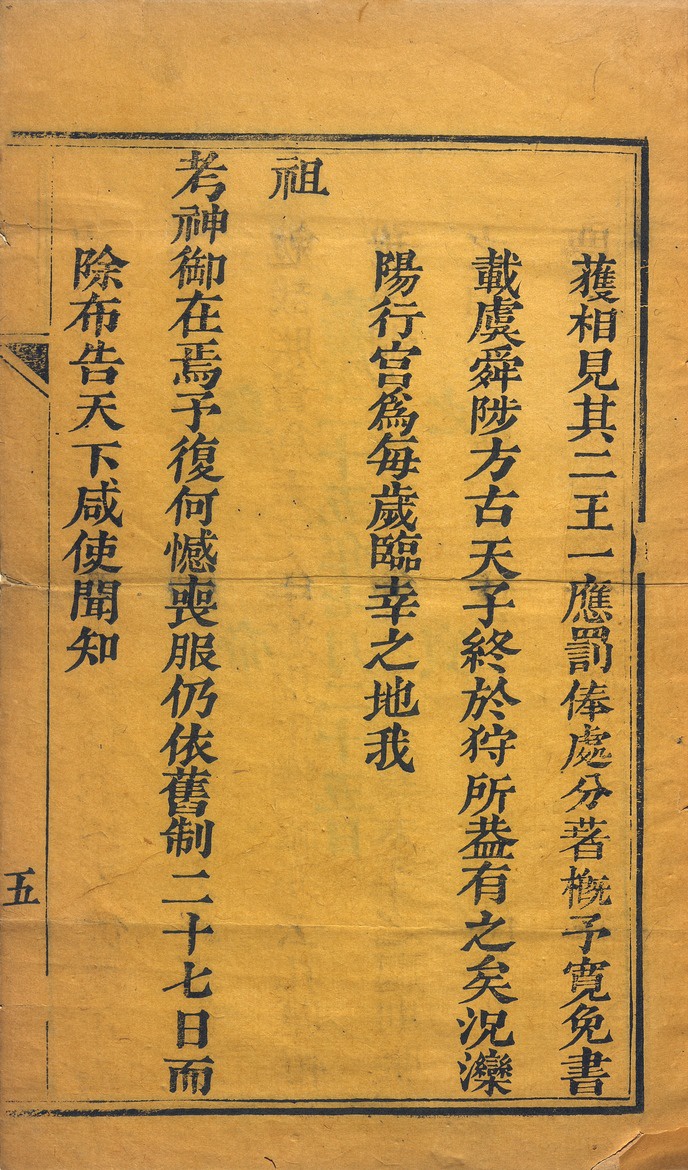 獲相見其二王一應罰俸處分著槪予寬免書
載虞舜陟方古天子終於狩所葢有之矣況灤
陽行宮爲每歲臨幸之地我
祖
考神御在焉予復何憾喪服仍依舊制二十七日而
除布告天下咸使聞知
五